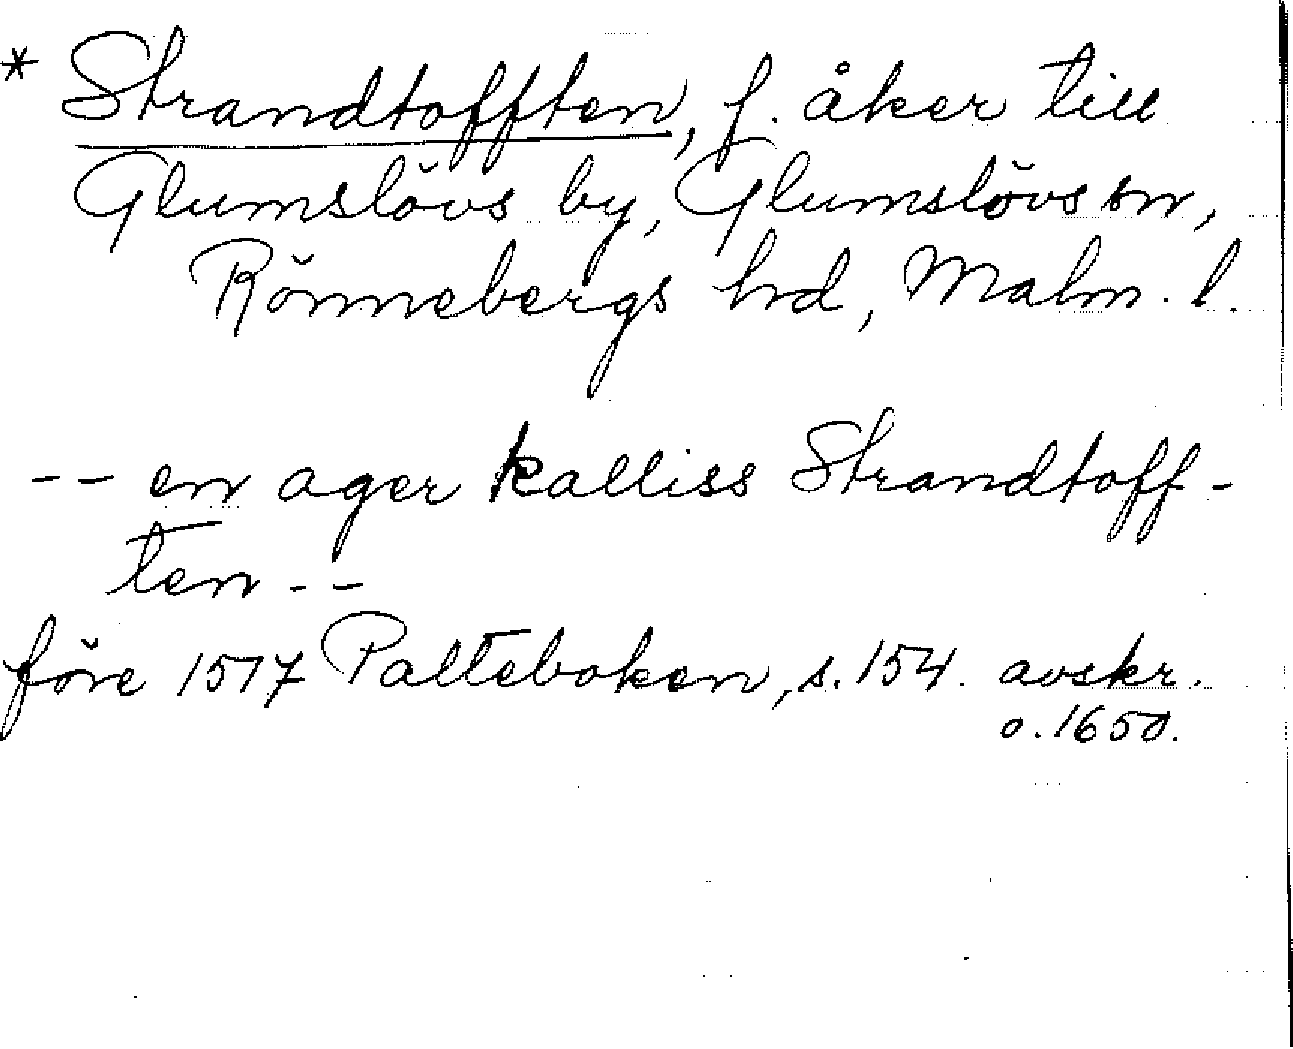 * Strandtofften, f. åker till
Glumslövs by, Glumslövs sn,
Rönnebergs hd, Malm. l.
-- en ager kalliss Strandtoff-
ten --
före 1517 Palteboken, s. 154. avskr.
o. 1650.